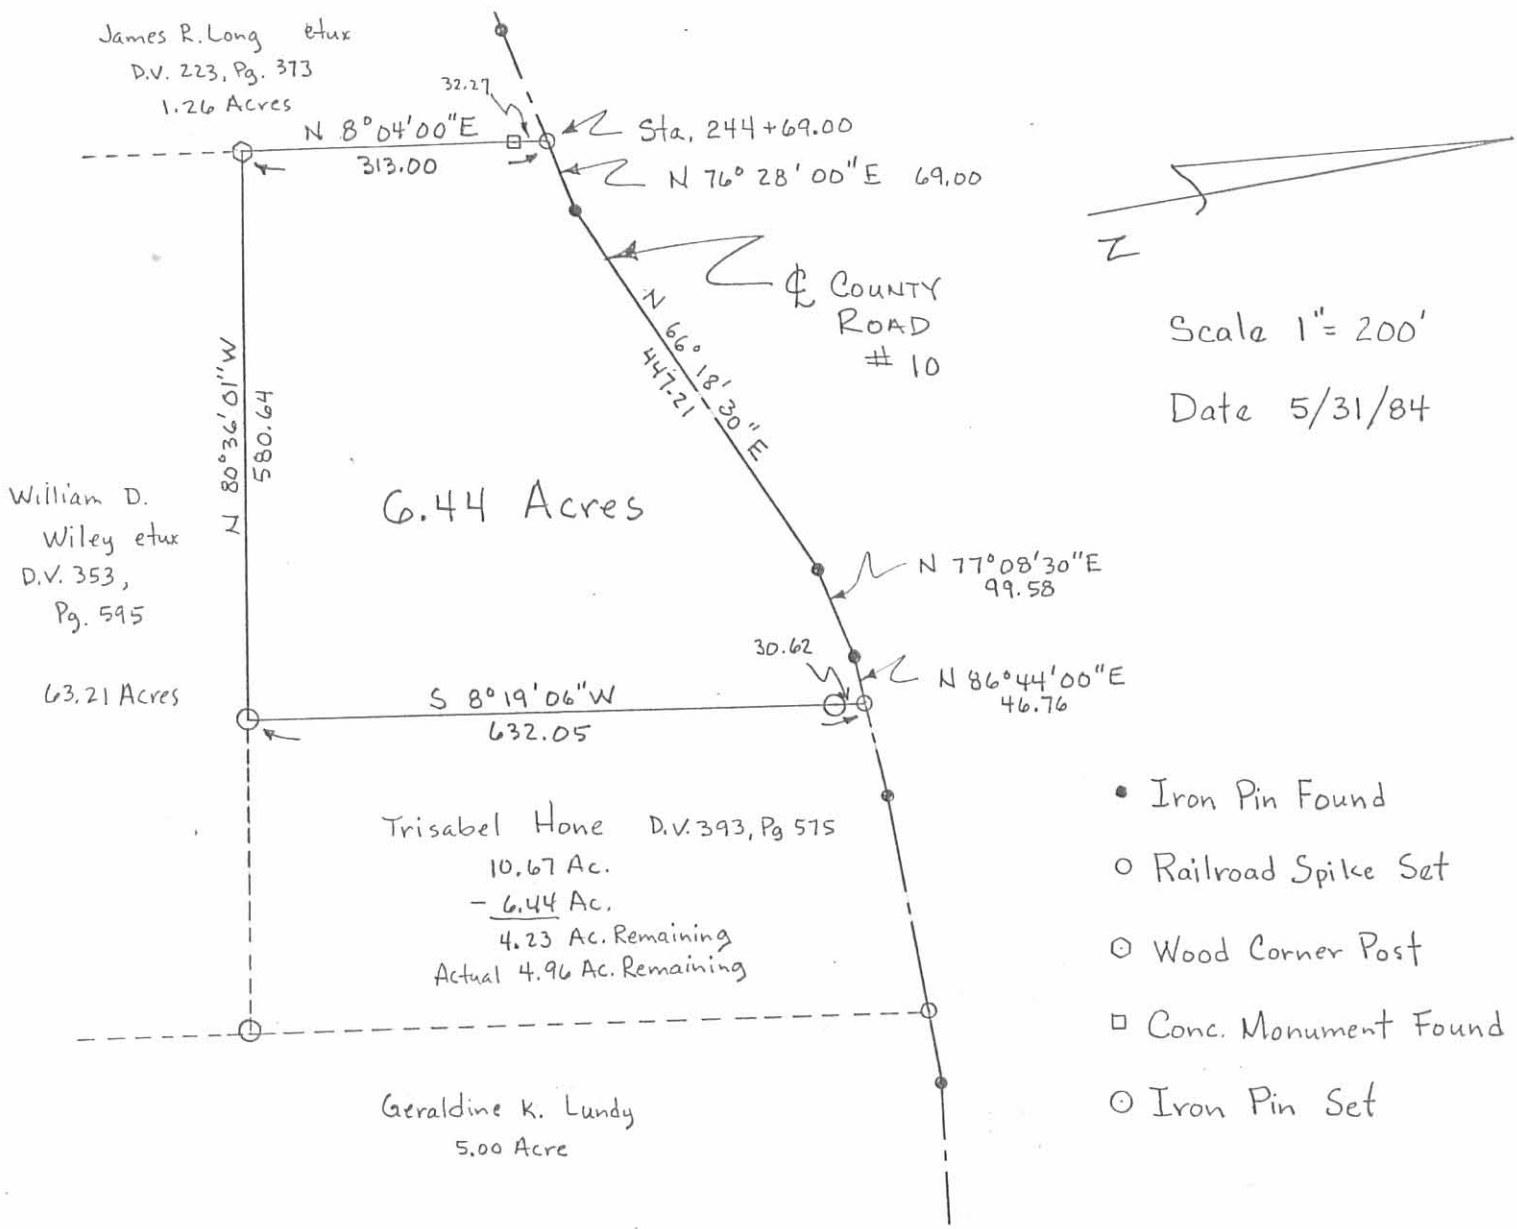 James R. Long etux
D.V. 223, Pg. 373
1.26 Acres
32.27
N 8°04'00"E
313.00
Sta. 244+69.00
N 76° 28' 00"E 69.00
℄ COUNTY
ROAD
# 10
N 66° 18' 30"E
447.21
Z
Scale 1"= 200'
Date 5/31/84
N 80°36'01"W
580.64
6.44 Acres
William D.
Wiley etux
D.V. 353,
Pg. 595
63.21 Acres
N 77°08'30"E
99.58
30.62
N 86°44'00"E
46.76
S 8°19'06"W
632.05
Trisabel Hone D.V. 393, Pg 575
10.67 Ac.
- 6.44 Ac.
4.23 Ac. Remaining
Actual 4.96 Ac. Remaining
Geraldine K. Lundy
5.00 Acre
Iron Pin Found
Railroad Spike Set
Wood Corner Post
Conc. Monument Found
Iron Pin Set